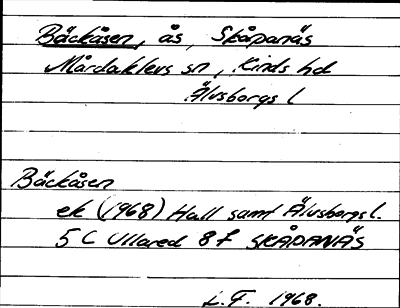 Bäckåsen, ås, Skåpanäs
Mårdaklevs sn, Kinds hd
Älvsborgs l
Bäckåsen
ek (1968) Hall samt Älvsborgs l.
5 C Ullared 8 f SKÅPANÄS
L.F. 1968.